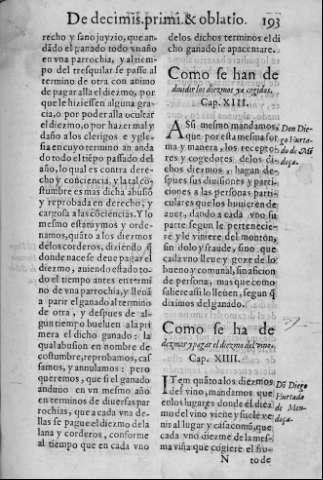 De decimis. primi. & oblatio. 193
recho y sano juyzio, que an-
dādo el ganado todo vn año
en vna parrochia, y al tiem-
po del tresquilar se passe al
termino de otra con animo
de pagar alla el diezmo, por
que le hiziessen alguna gra-
cia, o por poder alla ocultar
el diezmo, o por hazer mal y
daño a los clerigos e ygle-
sia en cuyo termino an anda
do todo el tiēpo passado del
año, lo qual es contra dere-
cho y conciencia, y la tal co-
stumbre es mas dicha abusiō
y reprobada en derecho, y
cargosa a las cōciencias. Y lo
mesmo estatuymos y orde-
namos, quāto a los diezmos
de los corderos, diziendo q̄
donde nace se deue pagar el
diezmo, auiendo estado to-
do el tiempo antes en termi
no de vna parrochia, y lleuā
a parir el ganado al termino
de otra, y despues de al-
gun tiempo bueluen a la pri
mera el dicho ganado: la
qual abusion en nombre de
costumbre, reprobamos, cas
samos, y annulamos: pero
queremos, que si el ganado
anduuo en vn mesmo año
en terminos de diuersas par
rochias, que a cada vna de-
llas se pague el diezmo de la
lana y corderos, conforme
al tiempo que en cada vno
de los dichos terminos el di
cho ganado se apacentare.
Como se han de
diuidir los diezmos ya cogidos.
Cap. XIII.
ASsi mesmo mandamos,
que por esta mesma for
ma y manera, los recepto-
res y cogedores de los di-
chos diezmos, hagan des-
pues sus diuisiones y parti-
ciones a las personas parti-
culares que los huuieren de
auer, dando a cada vno su
parte segun le pertenecie-
re y le viniere del monton,
sin dolo y fraude, sino que
cada vno lleue y goze de lo
bueno y comunal, sin aficion
de persona, mas que como
saliere assi lo lleuen, segun q̄
diximos del ganado.
Don Die-
go Hurta-
do de Mē
doça.
Como se ha de
dezmar y pagar el diezmo del vino.
Cap. XIIII.
ITem quāto a los diezmos
del vino, mandamos que
en los lugares donde el diez
mo del vino viene y suele ve
nir al lugar y casa comū, que
cada vno diezme de la mes-
ma viña que cogiere el fru-
Dō Diego
Hurtado
de Men-
doça.
N to de